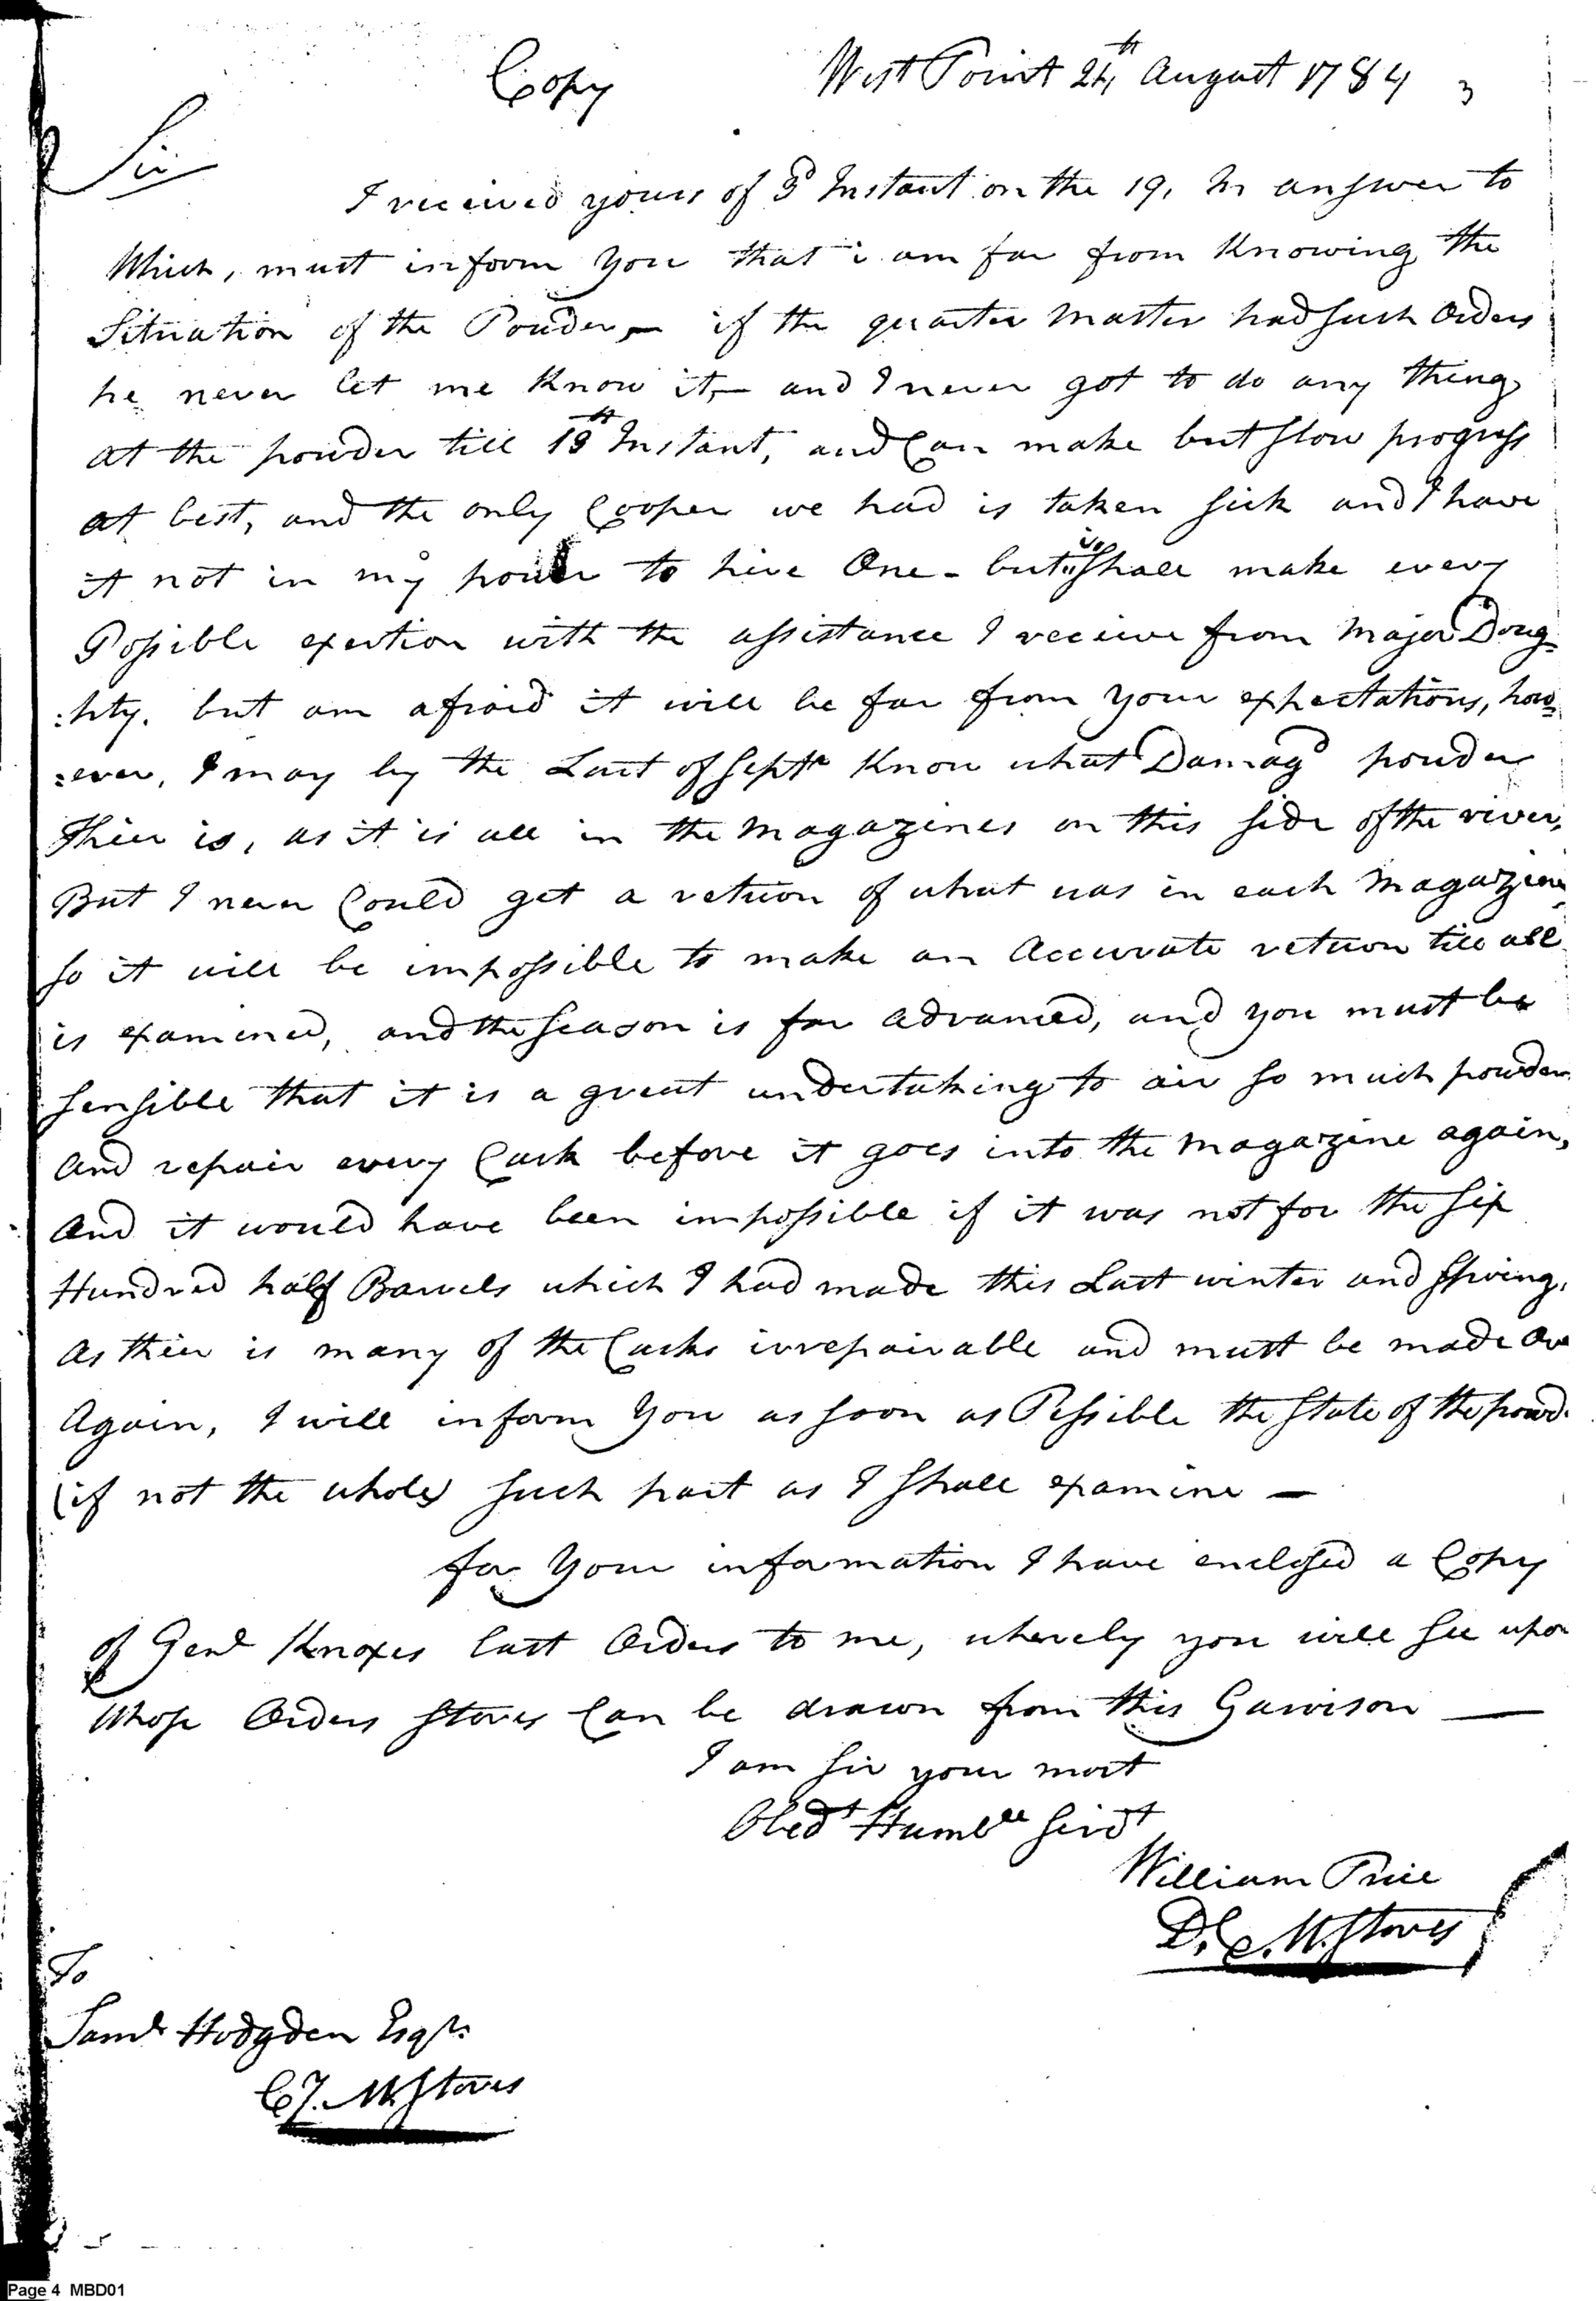 Copy West Point 24th August 1784 3
Sir
I received yours of 3d Instant on the 19, In answer to
Which, must inform you that i am far from Knowing the
Situation of the Pouder,— if the quarter Master had such Orders
he never let me Know it,— and I never got to do any thing
at the pouder till 13th Instant, and Can make but slow progress
at best, and the only Cooper we had is taken sick and I have
it not in my power to hire One - but shall make every
Possible exertion with the assistance I receive from Major Doug=
:hty. but am afraid it will be far from your expectations, how=
=ever, I may by the Last of Septr Know what Damagd pouder
Thier is, as it is all in the Magazines on this side of the river,
But I never Could get a return of what was in each Magazine
so it will be impossible to make an Accurate return till all
is examined, and the season is far advanced, and you must be
sensible that it is a great undertaking to air so much powder
And repair every Cask before it goes into the Magazine again,
And it would have been impossible if it was not for the six
Hundred half Barrels which I had made this Last winter and spring,
As thier is many of the Casks irrepairable and must be made Ov
Again, I will inform You as soon as Possible the state of the powd.
(if not the whole) such part as I shall examine —
for Your information I have enclosed a Copy
of Genl Knoxes last Orders to me, whereby you will see upon
Whose Orders stores Can be drawn from this Garrison —
I am Sir your most
Obedt Humble Servt
William Price
D. C. M. Stores
To
Saml Hodgden Esqr.
C G. M. Stores
Page 4 MBD01